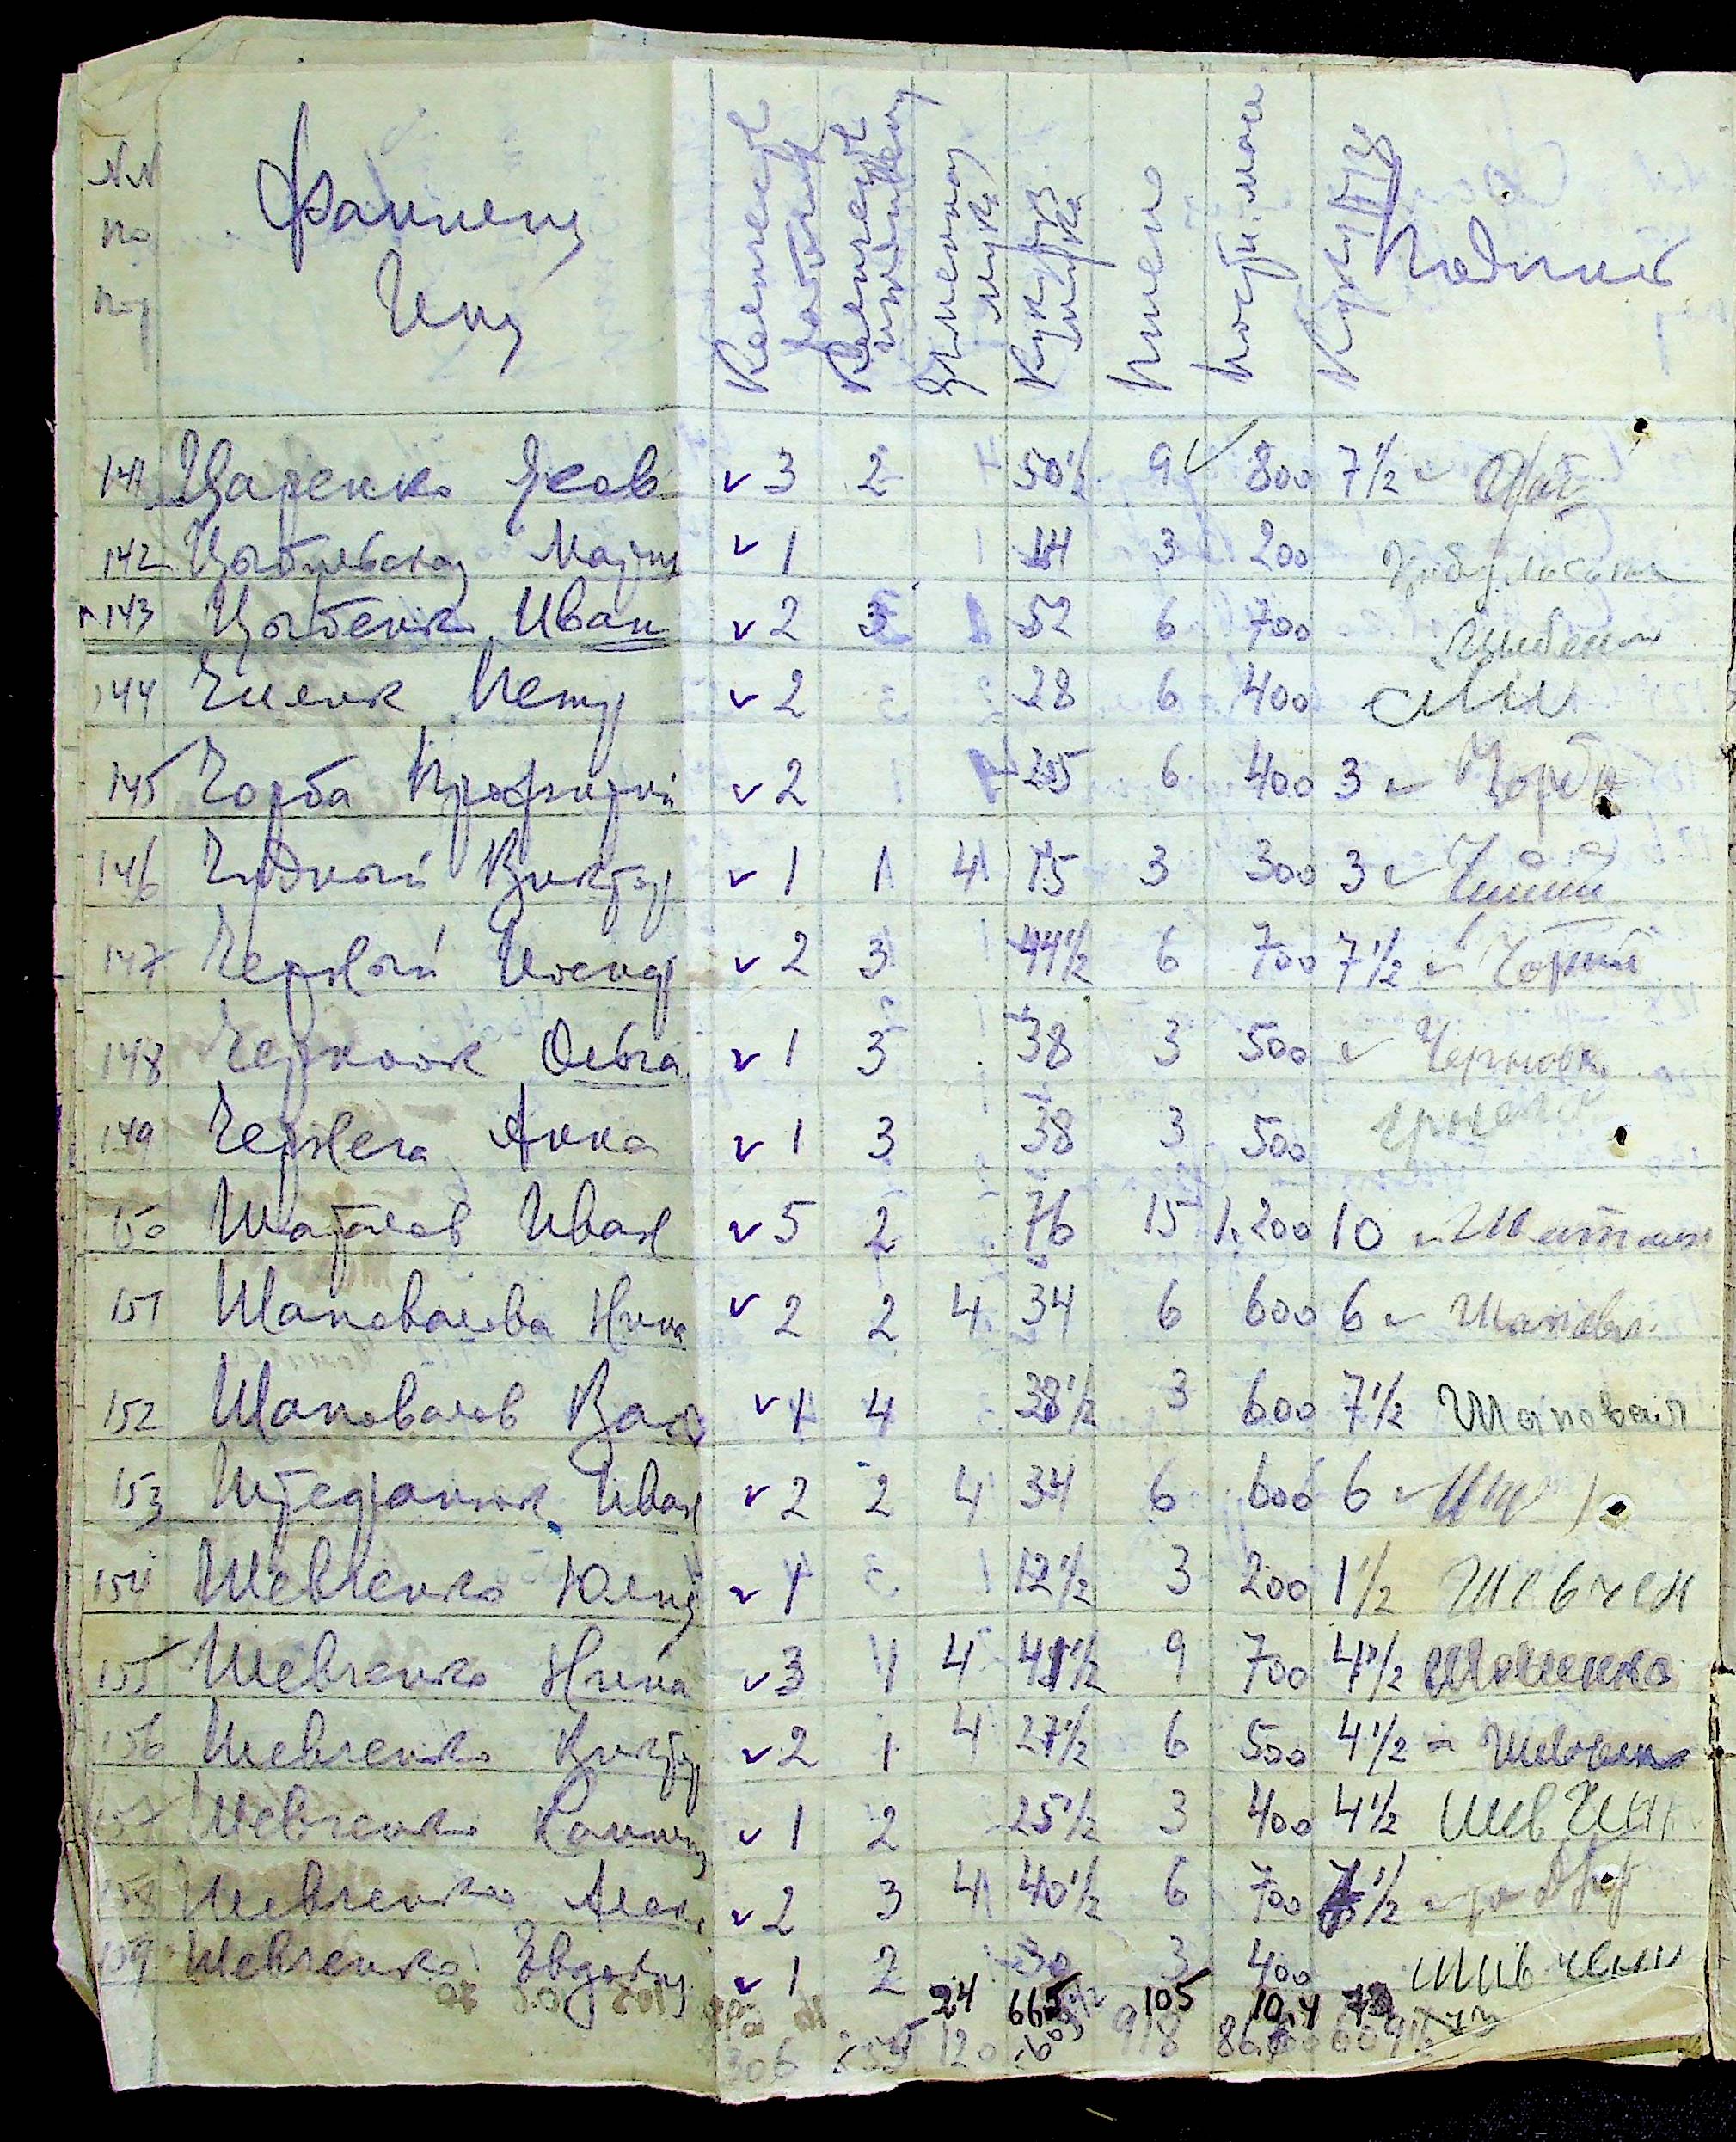 №№ по пор
Фамилия Имя
Количеств работник
Количеств иждивенц
Ячменная мука
Кук. мука
Пшено
Постн. масл
Кукуруза
Подпись
141 Царенко Яков v 3 2 50½ 9 800 7½
142 Цыбулевская Мария v 1 14 3 200
143 Цыбенко Иван v 2 3 52 6 700 Цыбенко
144 Петр v 2 28 6 400
145 Чорба Профирий v 2 25 6 400 3 Чорба
146 Чудный Виктор v 1 1 4 15 3 300 3
147 Черный Иосиф v 2 3 44½ 6 700 7½ Чорный
148 Чернюк Ольга v 1 3 38 3 500 Чернюк
149 Чернега Анна v 1 3 38 3 500
150 Шаталов Иван v 5 2 76 15 1.200 10 Шаталов
151 Шаповалова Нина v 2 2 4 34 6 600 6 Шаповал
152 Шаповалов Вас v 1 4 38½ 3 600 7½ Шаповал
153 Иван v 2 2 4 34 6 600 6
154 Шевченко Юлия v 1 12½ 3 200 1½ Шевчен
155 Шевченко Нина v 3 1 4 41½ 9 700 4½
156 Шевченко Виктор v 2 1 4 27½ 6 500 4½ Шевченко
157 Шевченко v 1 2 25½ 3 400 4½ Шевчен
158 Шевченко Алекс v 2 3 4 40½ 6 700 7½
159 Шевченко Евдокия v 1 2 30 3 400 Шивченко
24 665 105 10,4 73
306 120 918